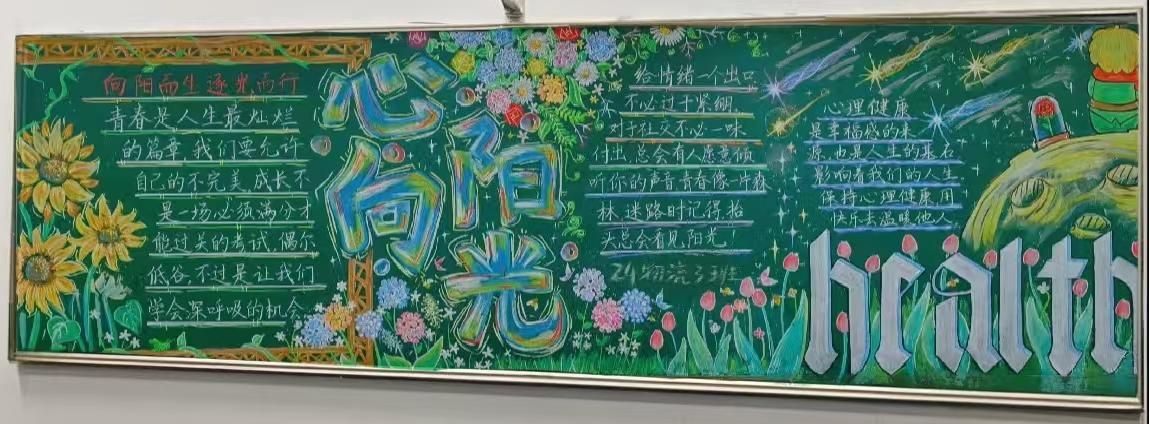 向阳而生逐光而行
青春是人生最灿烂
的篇章,我们要允许
自己的不完美,成长不
是一场必须满分才
能过关的考试,偶尔
低谷,不过是让我们
学会深呼吸的机会
心向
阳光
给情绪一个出口
不必过于紧绷
对于社交不必一味
付出,总会有人愿意倾
听你的声音青春像一片森
林,迷路时记得抬
头总会看见阳光
24物流3班
心理健康
是幸福感的来
源,也是人生的基石
影响着我们的人生
保持心理健康,用
快乐去温暖他人
health